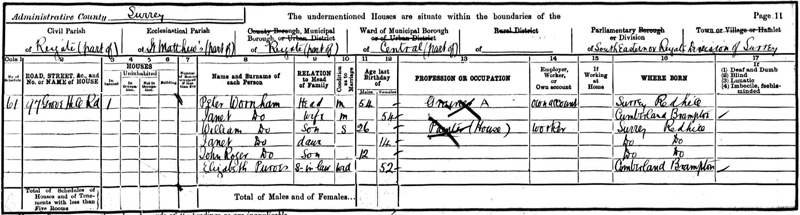 Administrative County Surrey
The undermentioned Houses are situate within the boundaries of the
Page 11
Civil Parish
of Reigate (part of)
Ecclesiastical Parish
of St Matthew's (part of)
County Borough, Municipal Borough, or Urban District
of Reigate (part of)
Ward of Municipal Borough or Urban District
of Central (part of)
Rural District
of
Parliamentary Borough or Division
of South Eastern or Reigate Division of Surrey
Town or Village or Hamlet
of
Cols 1 2 3 4 5 6 7 8 9 10 11 12 13 14 15 16 17
No. of Schedule
ROAD, STREET, &c., and No. or NAME of HOUSE
HOUSES
Inhabited
Uninhabited
In Occupation
Not in Occupation
Building
Name and Surname of each Person
RELATION to Head of Family
Condition as to Marriage
Age last Birthday of
Males
Females
PROFESSION OR OCCUPATION
Employer, Worker, or Own account
If Working at Home
WHERE BORN
If
(1) Deaf and Dumb
(2) Blind
(3) Lunatic
(4) Imbecile, feeble-minded
61 97 Grove Hill Rd 1 Peter Wornham Head M 54 Grainer A Own account Surrey Redhill
Janet Do Wife M 54 Cumberland Brampton
William Do Son S 26 Painter (House) Worker Surrey Redhill
Janet Do Daur 14 Do Do
John Roger Do Son 12 Do Do
Elizabeth Purves S-in-law Wid 52 Cumberland Brampton
Total of Schedules of Houses and of Tenements with less than Five Rooms
Total of Males and of Females...